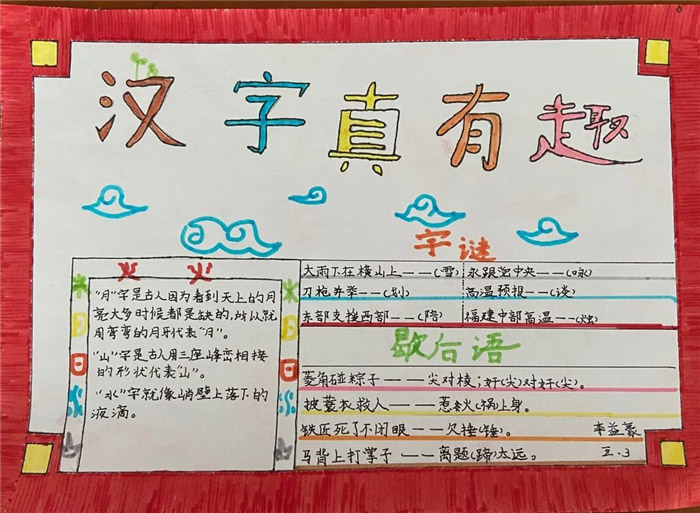 汉字真有趣
火 火
木
日
日
水
山
木
日
日
水
山
"月"字是古人因为看到天上的月
亮大多时候都是缺的,所以就
用弯弯的月牙代表"月"。
"山"字是古人用三座峰峦相接
的形状代表"山"。
"水"字就像峭壁上落下的
液滴。
字谜
大雨下在横山上——(雪)
永跟党中央——(咏)
刀枪并举——(划)
高温预报——(谈)
东部支援西部——(陪)
福建中部高温——(烛)
歇后语
菱角碰粽子———尖对棱;奸(尖)对奸(尖)。
披蓑衣救人———惹火(祸)上身。
铁匠死了不闭眼——欠捶(锤)。
马背上打掌子——离题(蹄)太远。
李益
五.3